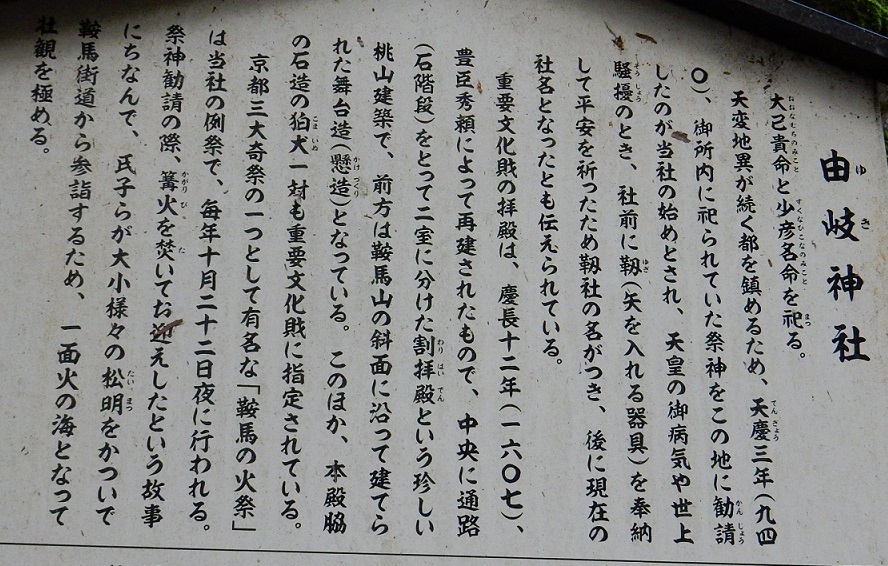 由岐神社
大己貴命と少彦名命を祀る。
天変地異が続く都を鎮めるため、天慶三年(九四
〇)、御所内に祀られていた祭神をこの地に勧請
したのが当社の始めとされ、天皇の御病気や世上
騒擾のとき、社前に靱(矢を入れる器具)を奉納
して平安を祈ったため靱社の名がつき、後に現在の
社名となったとも伝えられている。
重要文化財の拝殿は、慶長十二年(一六〇七)、
豊臣秀頼によって再建されたもので、中央に通路
(石階段)をとって二室に分けた割拝殿という珍しい
桃山建築で、前方は鞍馬山の斜面に沿って建てら
れた舞台造(懸造)となっている。このほか、本殿脇
の石造の狛犬一対も重要文化財に指定されている。
京都三大奇祭の一つとして有名な「鞍馬の火祭」
は当社の例祭で、毎年十月二十二日夜に行われる。
祭神勧請の際、篝火を焚いてお迎えしたという故事
にちなんで、氏子らが大小様々の松明をかついで
鞍馬街道から参詣するため、一面火の海となって
壮観を極める。